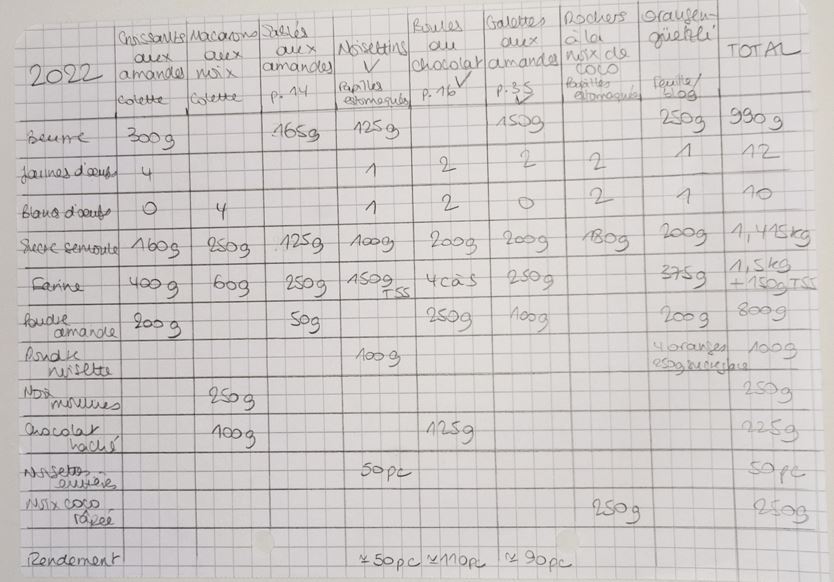 2022
Croissants aux amandes Colette
Macarons aux noix Colette
Sablés aux amandes p.14
Noisettins ✓ Papilles estomaquées
Boules au chocolat ✓ p.16
Galettes aux amandes p.35 ✓
Rochers à la noix de coco Papilles estomaquées
Orangen-güetzli Feuille/blog
TOTAL
Beurre 300g 165g 125g 150g 250g 990g
Jaunes d'œufs 4 1 2 2 2 1 12
Blancs d'œufs 0 4 1 2 0 2 1 10
Sucre semoule 160g 250g 125g 100g 200g 200g 180g 200g 1,415kg
Farine 400g 60g 250g 150g TSS 4càs 250g 375g 1,5kg + 150g TSS
Poudre amande 200g 50g 250g 100g 200g 800g
Poudre noisette 100g 4 oranges 250g sucre glace 100g
Noix moulues 250g 250g
Chocolat haché 100g 125g 225g
Noisettes entières 50pc 50pc
Noix coco râpée 250g 250g
Rendement ≈50pc ≈110pc ≈90pc